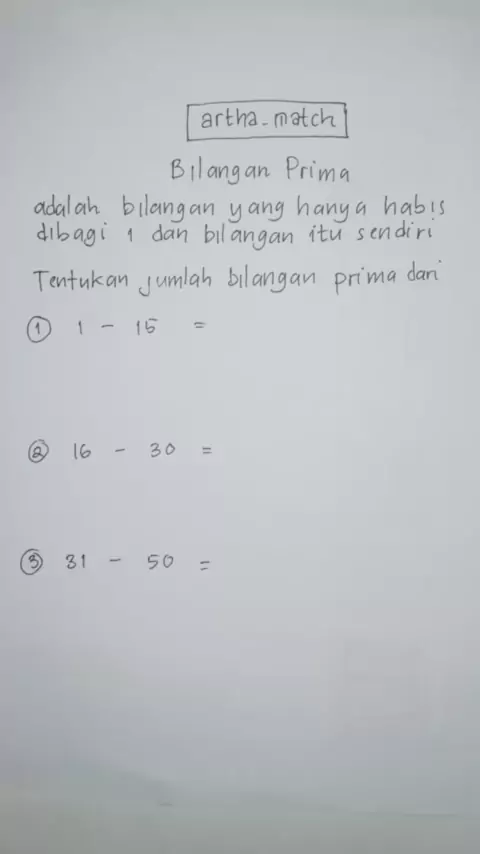 artha_match
Bilangan Prima
adalah bilangan yang hanya habis
dibagi 1 dan bilangan itu sendiri
Tentukan jumlah bilangan prima dari
① 1 - 15 =
② 16 - 30 =
③ 31 - 50 =